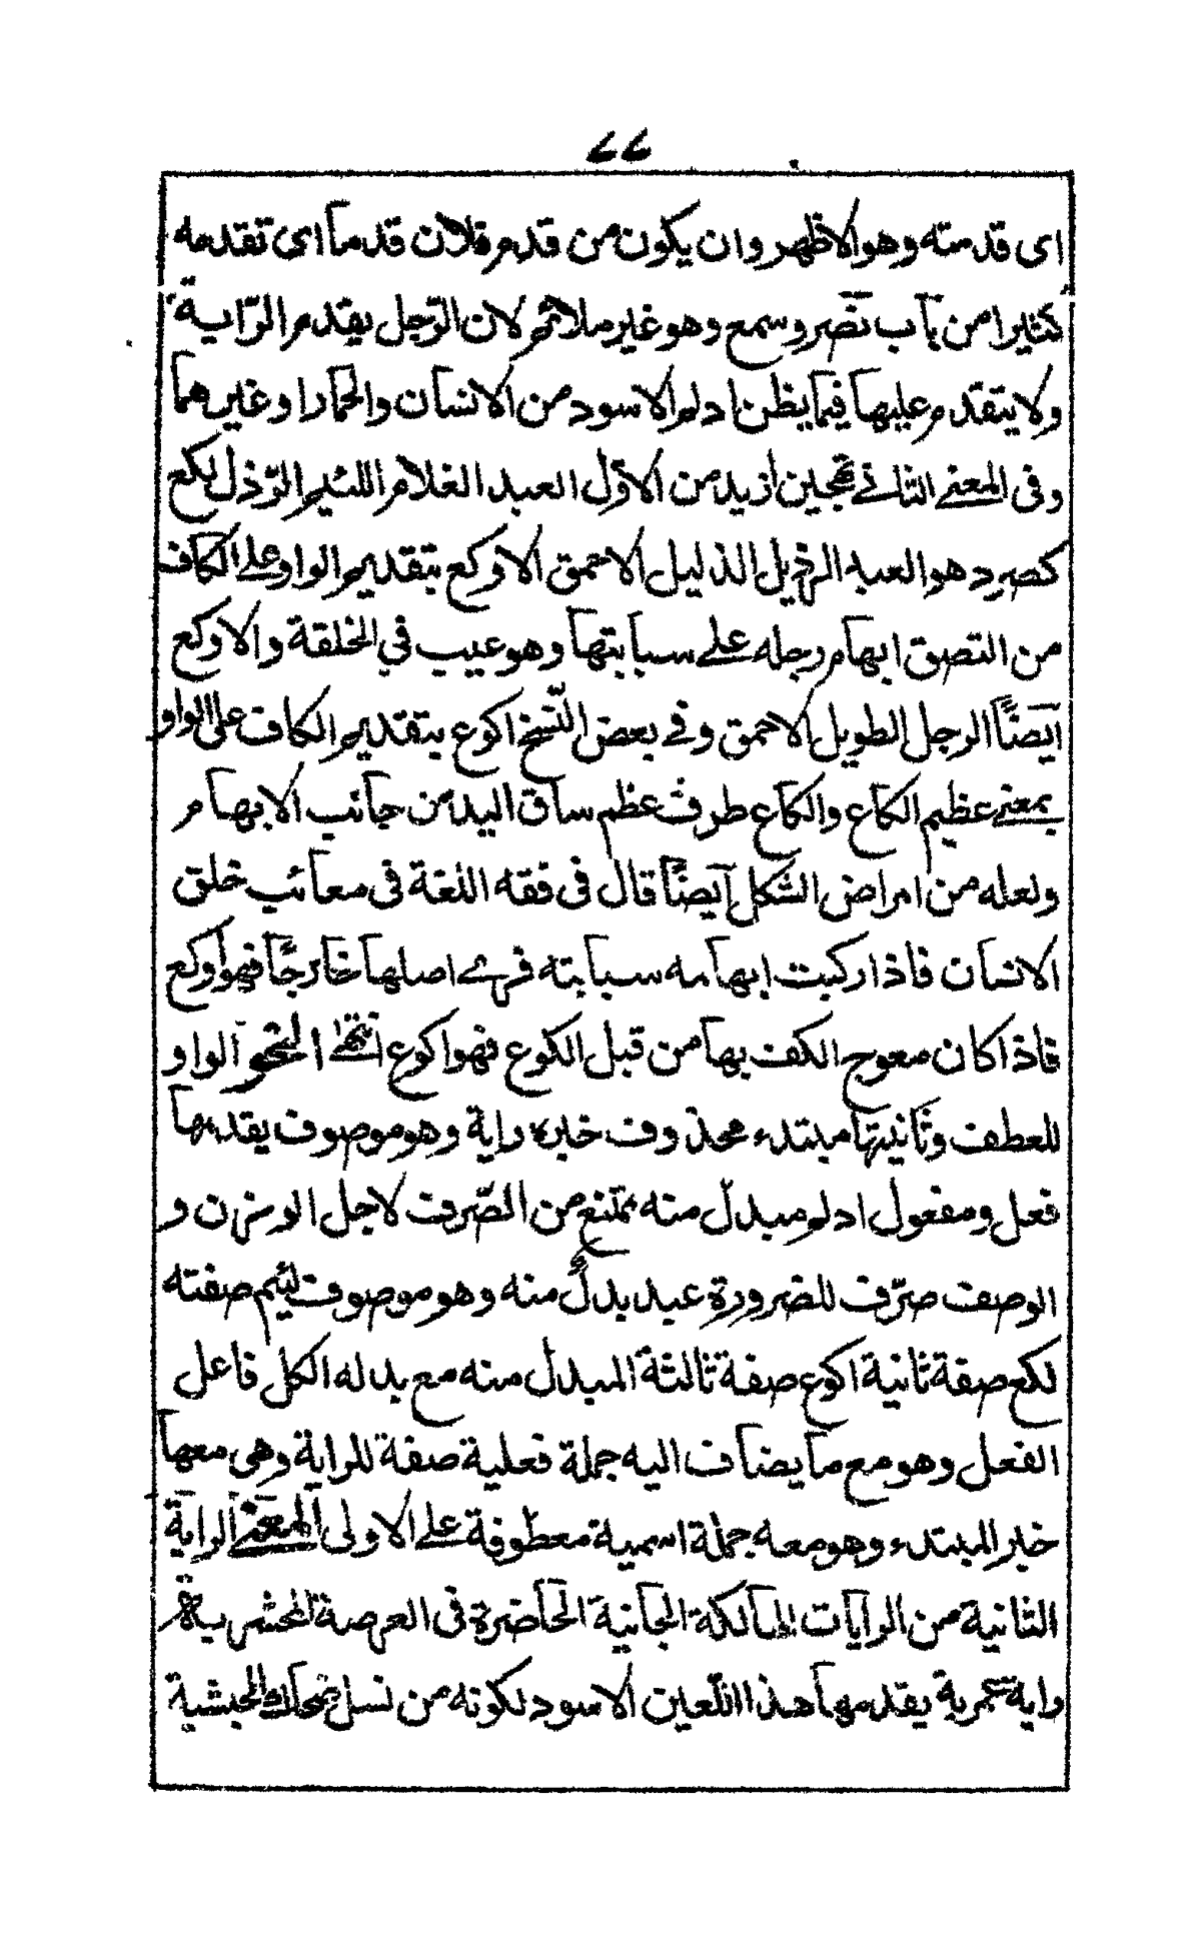 ۷۷
اى قدمته وهو الاظهر وان يكون من قدم فلان قدما اى تقدمه
كثيرا من باب نصر وسمع وهو غير ملائم لان الرّجل يقدم الرّاية
ولا يتقدم عليها فيما يظن ادلم الاسود من الانسان والحمار او غيرهما
وفى المعنے الثانے تهجين ازيد من الاوّل العبد الغلام اللئيم الرّذل لكع
كصرد هو العبد الرذيل الذليل الاحمق الاوكع بتقديم الواو علے الكاف
من التصق ابهام رجله علے سبابتها وهو عيب في الخلقة والاوكع
ايضًا الرجل الطويل الاحمق وفے بعض النّسخ اكوع بتقديم الكاف على الواو
بمعنے عظيم الكاع والكاع طرف عظم ساق اليد من جانب الابهام
ولعله من امراض الشكل ايضًا قال فى فقه اللغة فى معائب خلق
الانسان فاذا ركبت ابهامه سبابته فرے اصلها خارجًا فهو اوكع
فاذا كان معوج الكف بها من قبل الكوع فهو اكوع انتهے النحو الواو
للعطف وثانيتها مبتدء محذوف خبره راية وهو موصوف يقدمها
فعل ومفعول ادلم مبدل منه يمتنع من الصّرف لاجل الوزن و
الوصف صرّف للضرورة عبد بدلٌ منه وهو موصوف لئيم صفته
لكع صفة ثانية اكوع صفة ثالثة المبدل منه مع بدله الكل فاعل
الفعل وهو مع ما يضاف اليه جملة فعلية صفة للراية وهى معها
خبر المبتدء وهو معه جملة اسمية معطوفة علے الاولى المعنے الراية
الثانية من الرايات الهالكة الجانية الحاضرة فى العرصة المحشرية
راية عمرية يقدمها هذا اللّعين الاسود لكونه من نسل ضحاك الحبشية